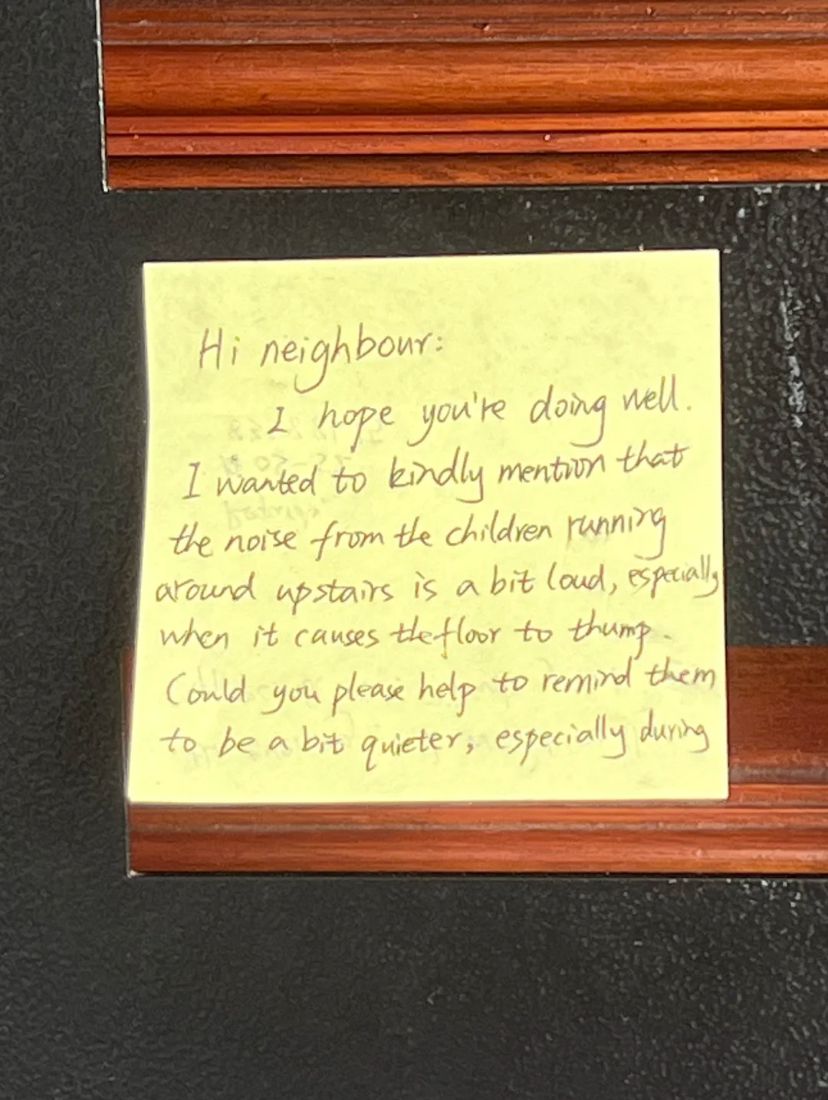 Hi neighbour:
I hope you're doing well.
I wanted to kindly mention that
the noise from the children running
around upstairs is a bit loud, especially
when it causes the floor to thump.
Could you please help to remind them
to be a bit quieter, especially during